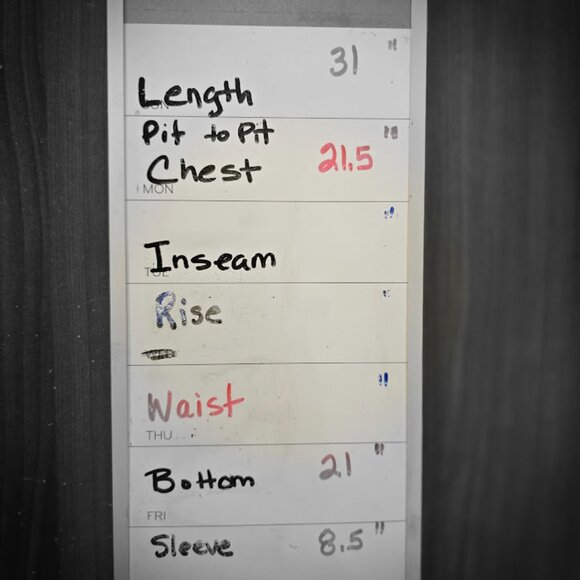 31 "
Length
Pit to Pit "
Chest 21.5
MON
"
Inseam
Rise "
Waist "
THU
Bottom 21 "
FRI
Sleeve 8.5 "